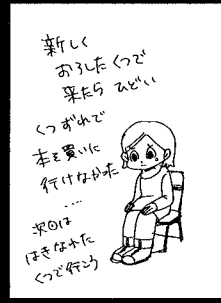 新しく
おろしたくつで
来たら ひどい
くつずれで
本を買いに
行けなかった
....
次回は
はきなれた
くつで行こう